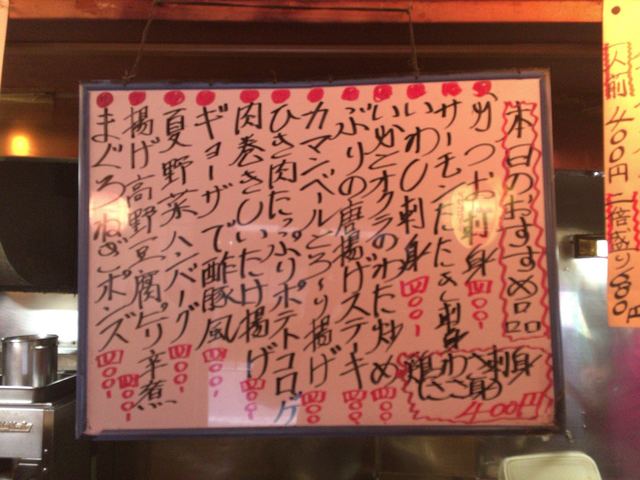 本日のおすすめ品
かつお刺身 四〇〇-
サーモンたたき刺身
いわし刺身 四〇〇-
いかとオクラのわた炒め 四〇〇-
ぶりの唐揚げステーキ 四〇〇-
カマンベールとろ〜り揚げ 四〇〇
ひき肉たっぷりポテトコロッケ
肉巻きしいたけ揚げ 四〇〇-
ギョーザで酢豚風 四〇〇-
夏野菜ハンバーグ 四〇〇-
揚げ高野豆腐ピリ辛煮 四〇〇-
まぐろねぎポンズ 四〇〇-
鶏わさ刺身
400円
一人前 400円 二倍盛り 800円